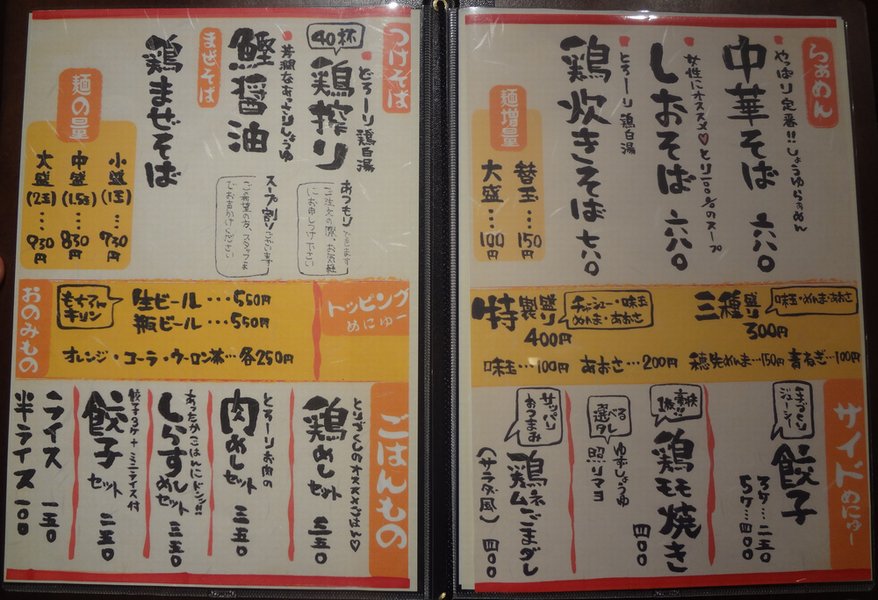 らぁめん
やっぱり定番!!しょうゆらぁめん
中華そば 六八〇
女性にオススメ♡とり100%のスープ
しおそば 六八〇
とろーり鶏白湯
鶏炊きそば 七八〇
麺増量
替玉…150円
大盛…100円
つけそば
とろーり鶏白湯
40杯
鶏搾り
あつもりできます
ご注文の際、お気軽
にお申しつけ下さい
芳潤なあっさりしょうゆ
鰹醤油
スープ割りございます
ご希望の方、スタッフま
でお声かけください
まぜそば
鶏まぜそば
麺の量
小盛(1玉)…730円
中盛(1.5玉)…830円
大盛(2玉)…930円
トッピング
めにゅー
三種盛り
300円
味玉・めんま・あおさ
特製盛り
400円
チャーシュー・味玉
めんま・あおさ
味玉…100円 あおさ…200円 穂先めんま…150円 青ねぎ…100円
おのみもの
もちろん
キリン
生ビール…550円
瓶ビール…550円
オレンジ・コーラ・ウーロン茶…各250円
サイドめにゅー
手づくり
ジューシィー
餃子
3ケ…二五〇
5ケ…四〇〇
豪快
1枚!!
鶏モモ焼き 四〇〇
選べる
タレ
ゆずしょうゆ
照りマヨ
サッパリ
おつまみ
鶏ムネごまダレ
(サラダ風) 四〇〇
ごはんもの
とりづくしのオススメごはん♡
鶏めしセット 三五〇
とろーりお肉の
肉めしセット 三五〇
あったかごはんにドンッ!!
しらすめしセット 三五〇
餃子3ケ+ミニライス付
餃子セット 三五〇
ライス 一五〇
半ライス 一〇〇